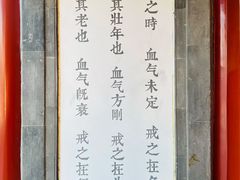 之時 血气未定 戒之在
其壯年也 血气方剛 戒之在
其老也 血气既衰 戒之在